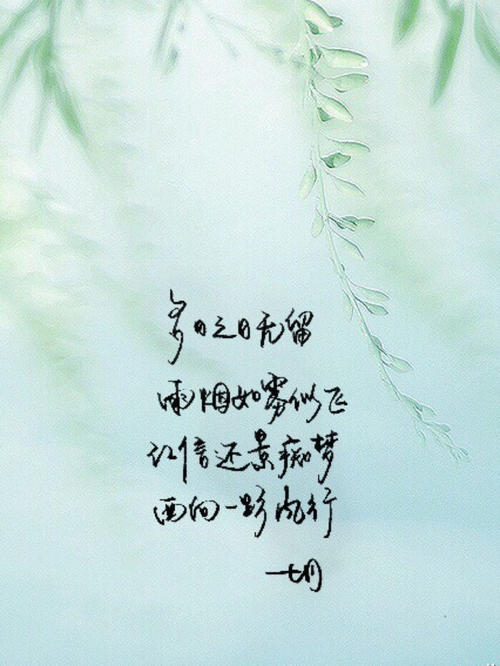 多日之日无留
雨烟如雾似飞
江信还景痴梦
西向一影风行
七月